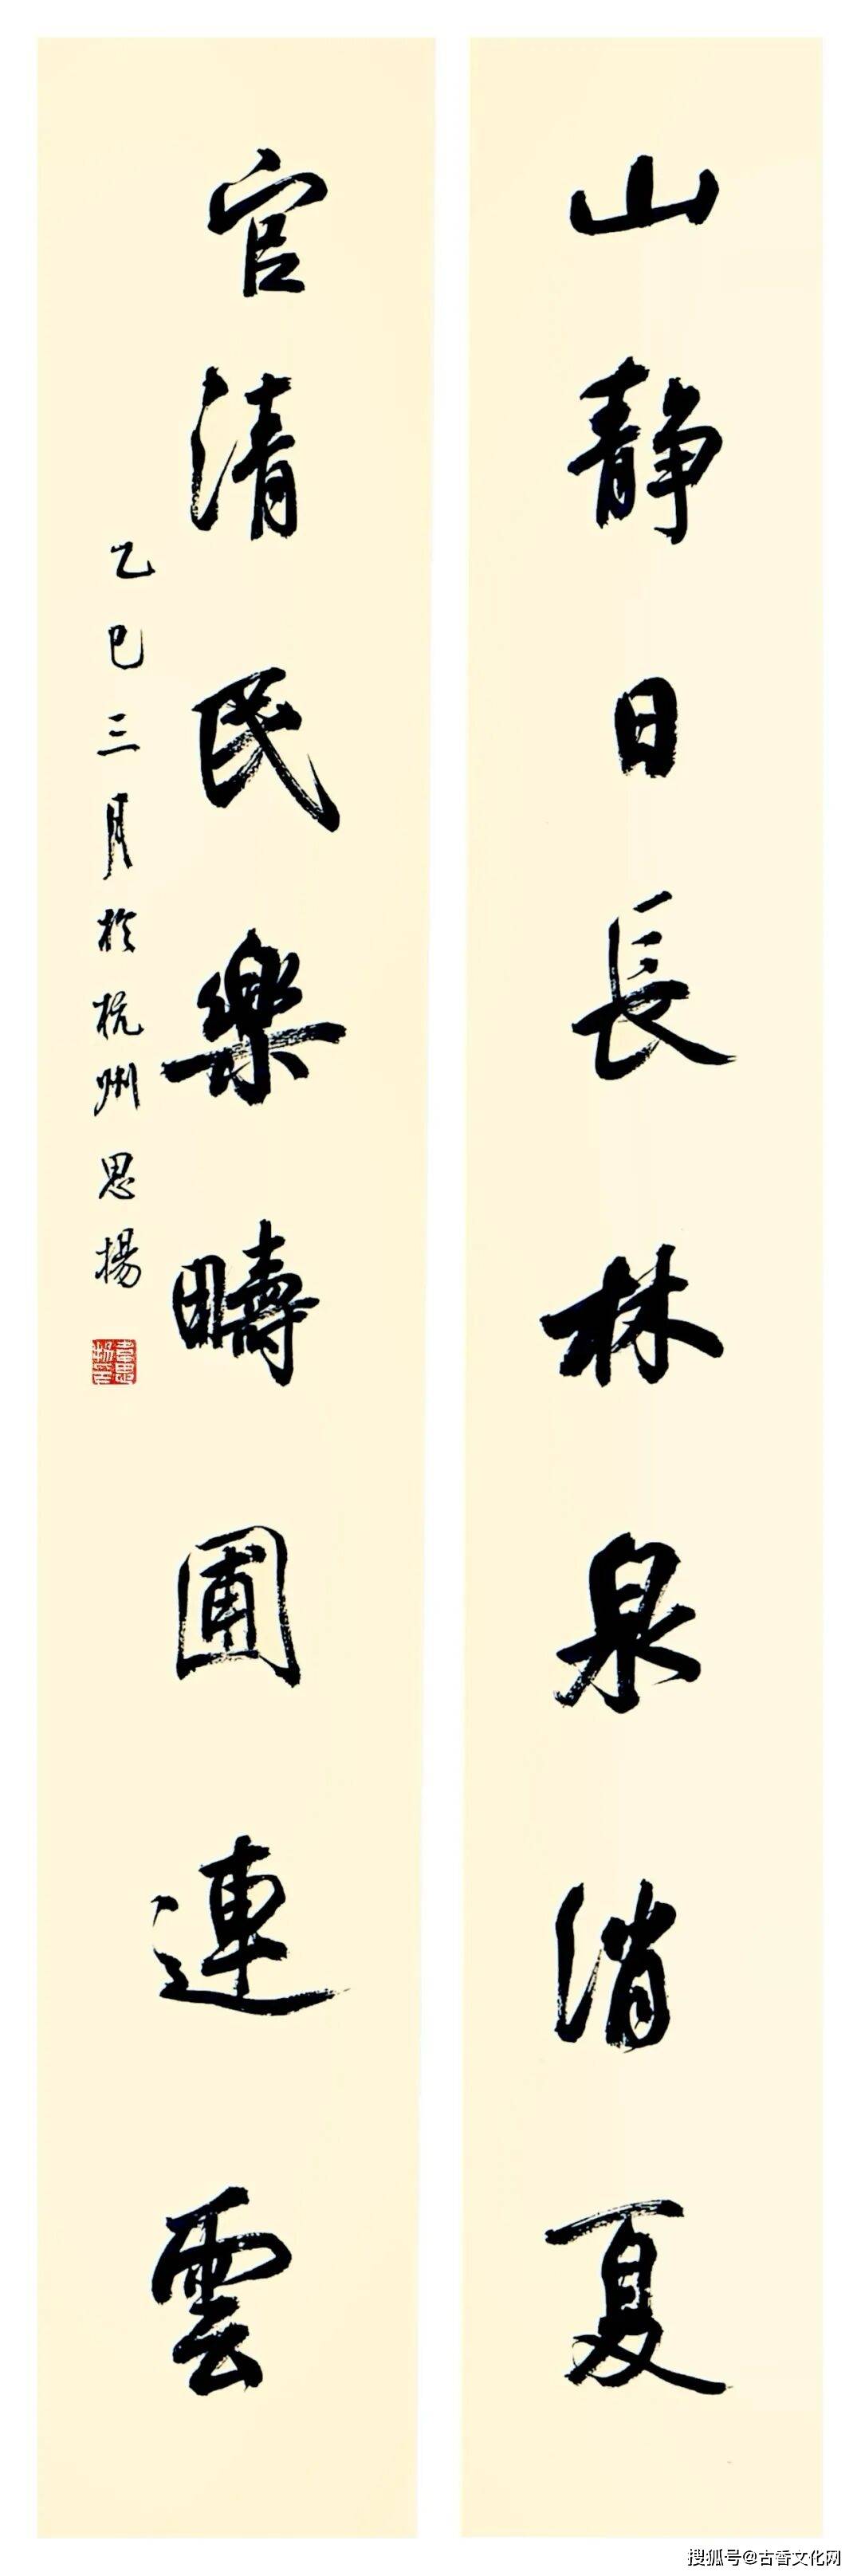 山静日長林泉消夏
官清民樂疇圃連雲
乙巳三月於杭州思揚
搜狐号@古香文化网